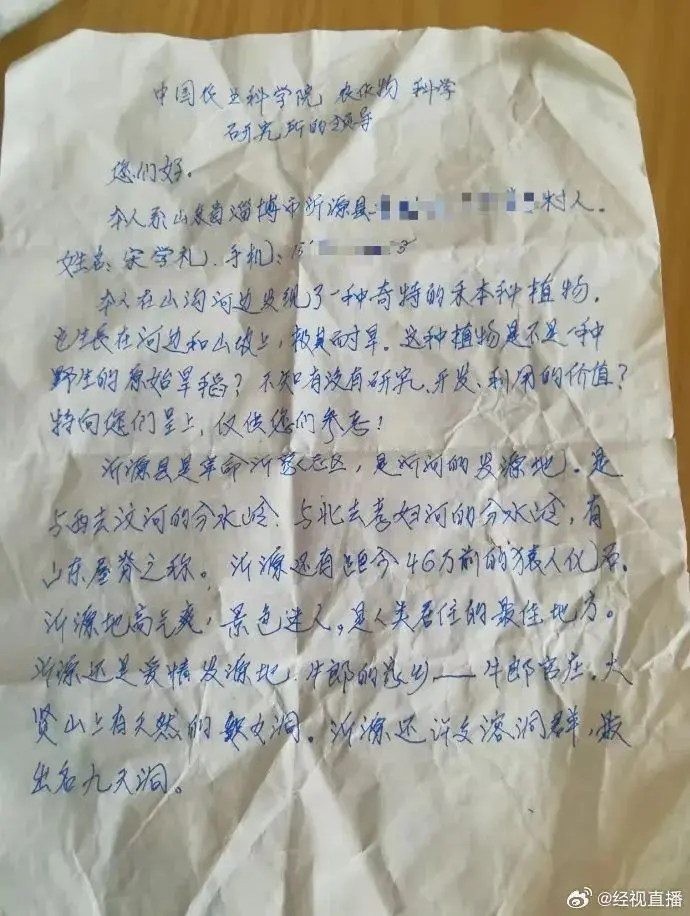 中国农业科学院 农作物 科学
研究所的领导
您们好。
本人系山东省淄博市沂源县 村人。
姓名:宋学礼.手机:15 3
本人在山沟河边发现了一种奇特的禾本种植物.
它生长在河边和山坡上,极其耐旱。这种植物是不是一种
野生的原始旱稻?不知有没有研究、开发、利用的价值?
特向您们呈上,仅供您们参考!
沂源县是革命沂蒙老区,是沂河的发源地.是
与西去汶河的分水岭.与北去孝妇河的分水岭,有
山东屋脊之称。沂源还有距今46万前的猿人化石.
沂源地高气爽,景色迷人,是人类居住的最佳地方。
沂源还是爱情发源地.牛郎的故乡——牛郎官庄.大
贤山上有天然的织女洞。沂源还许多溶洞群,最
出名九天洞。
@经视直播